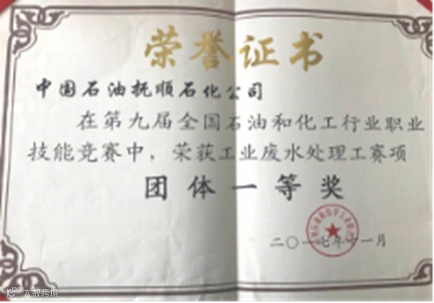 荣誉证书
中国石油抚顺石化公司
在第九届全国石油和化工行业职业
技能竞赛中，荣获工业废水处理工赛项
团体一等奖
二〇一七年十一月